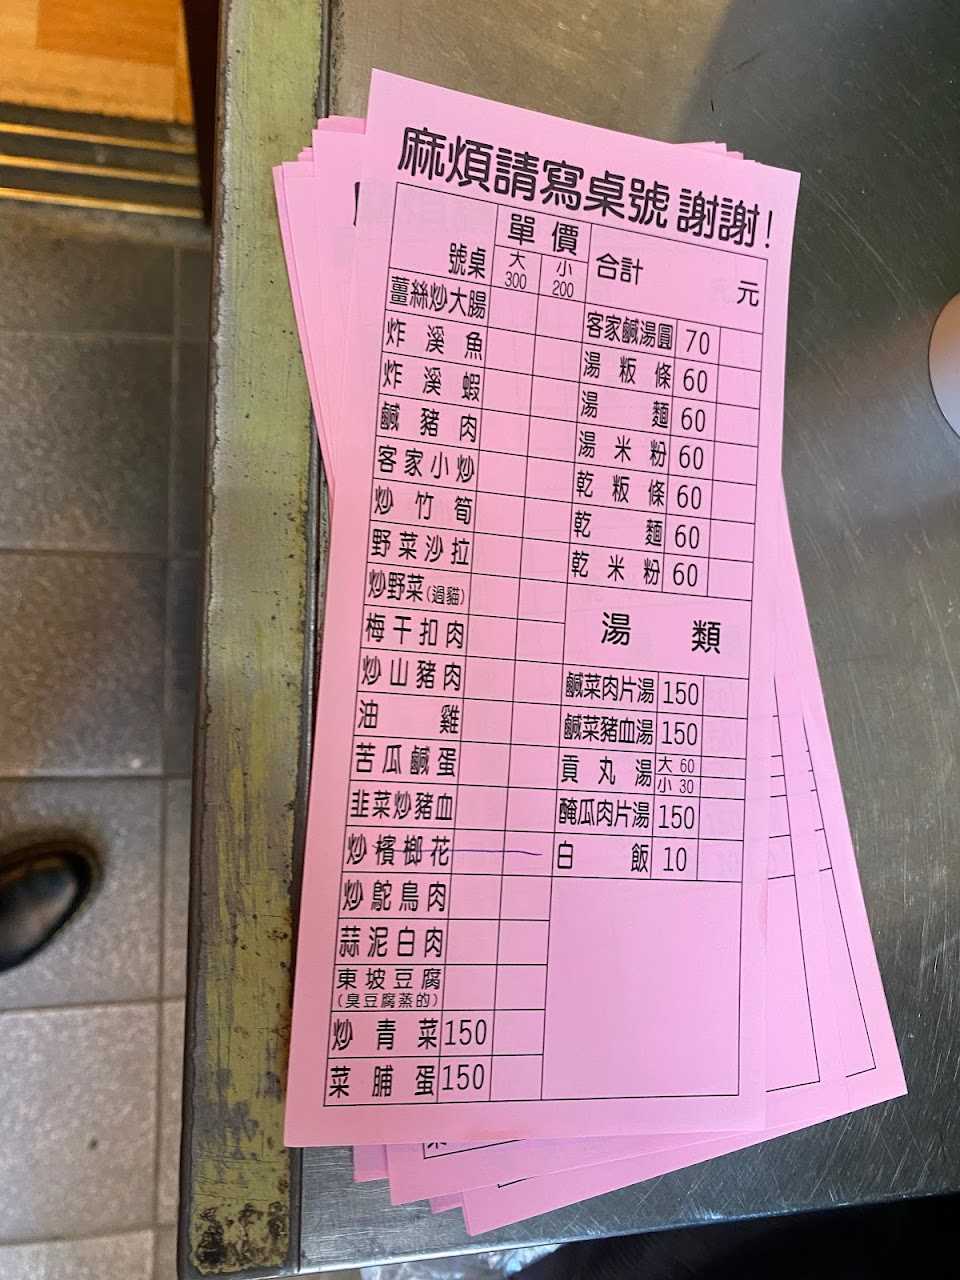 麻煩請寫桌號 謝謝!
號桌
單價
大
300
小
200
合計 元
薑絲炒大腸
炸溪魚
炸溪蝦
鹹豬肉
客家小炒
炒竹筍
野菜沙拉
炒野菜(過貓)
梅干扣肉
炒山豬肉
油雞
苦瓜鹹蛋
韭菜炒豬血
炒檳榔花
炒鴕鳥肉
蒜泥白肉
東坡豆腐
(臭豆腐蒸的)
炒青菜 150
菜脯蛋 150
客家鹹湯圓 70
湯粄條 60
湯麵 60
湯米粉 60
乾粄條 60
乾麵 60
乾米粉 60
湯類
鹹菜肉片湯 150
鹹菜豬血湯 150
貢丸湯 大 60
小 30
醃瓜肉片湯 150
白飯 10